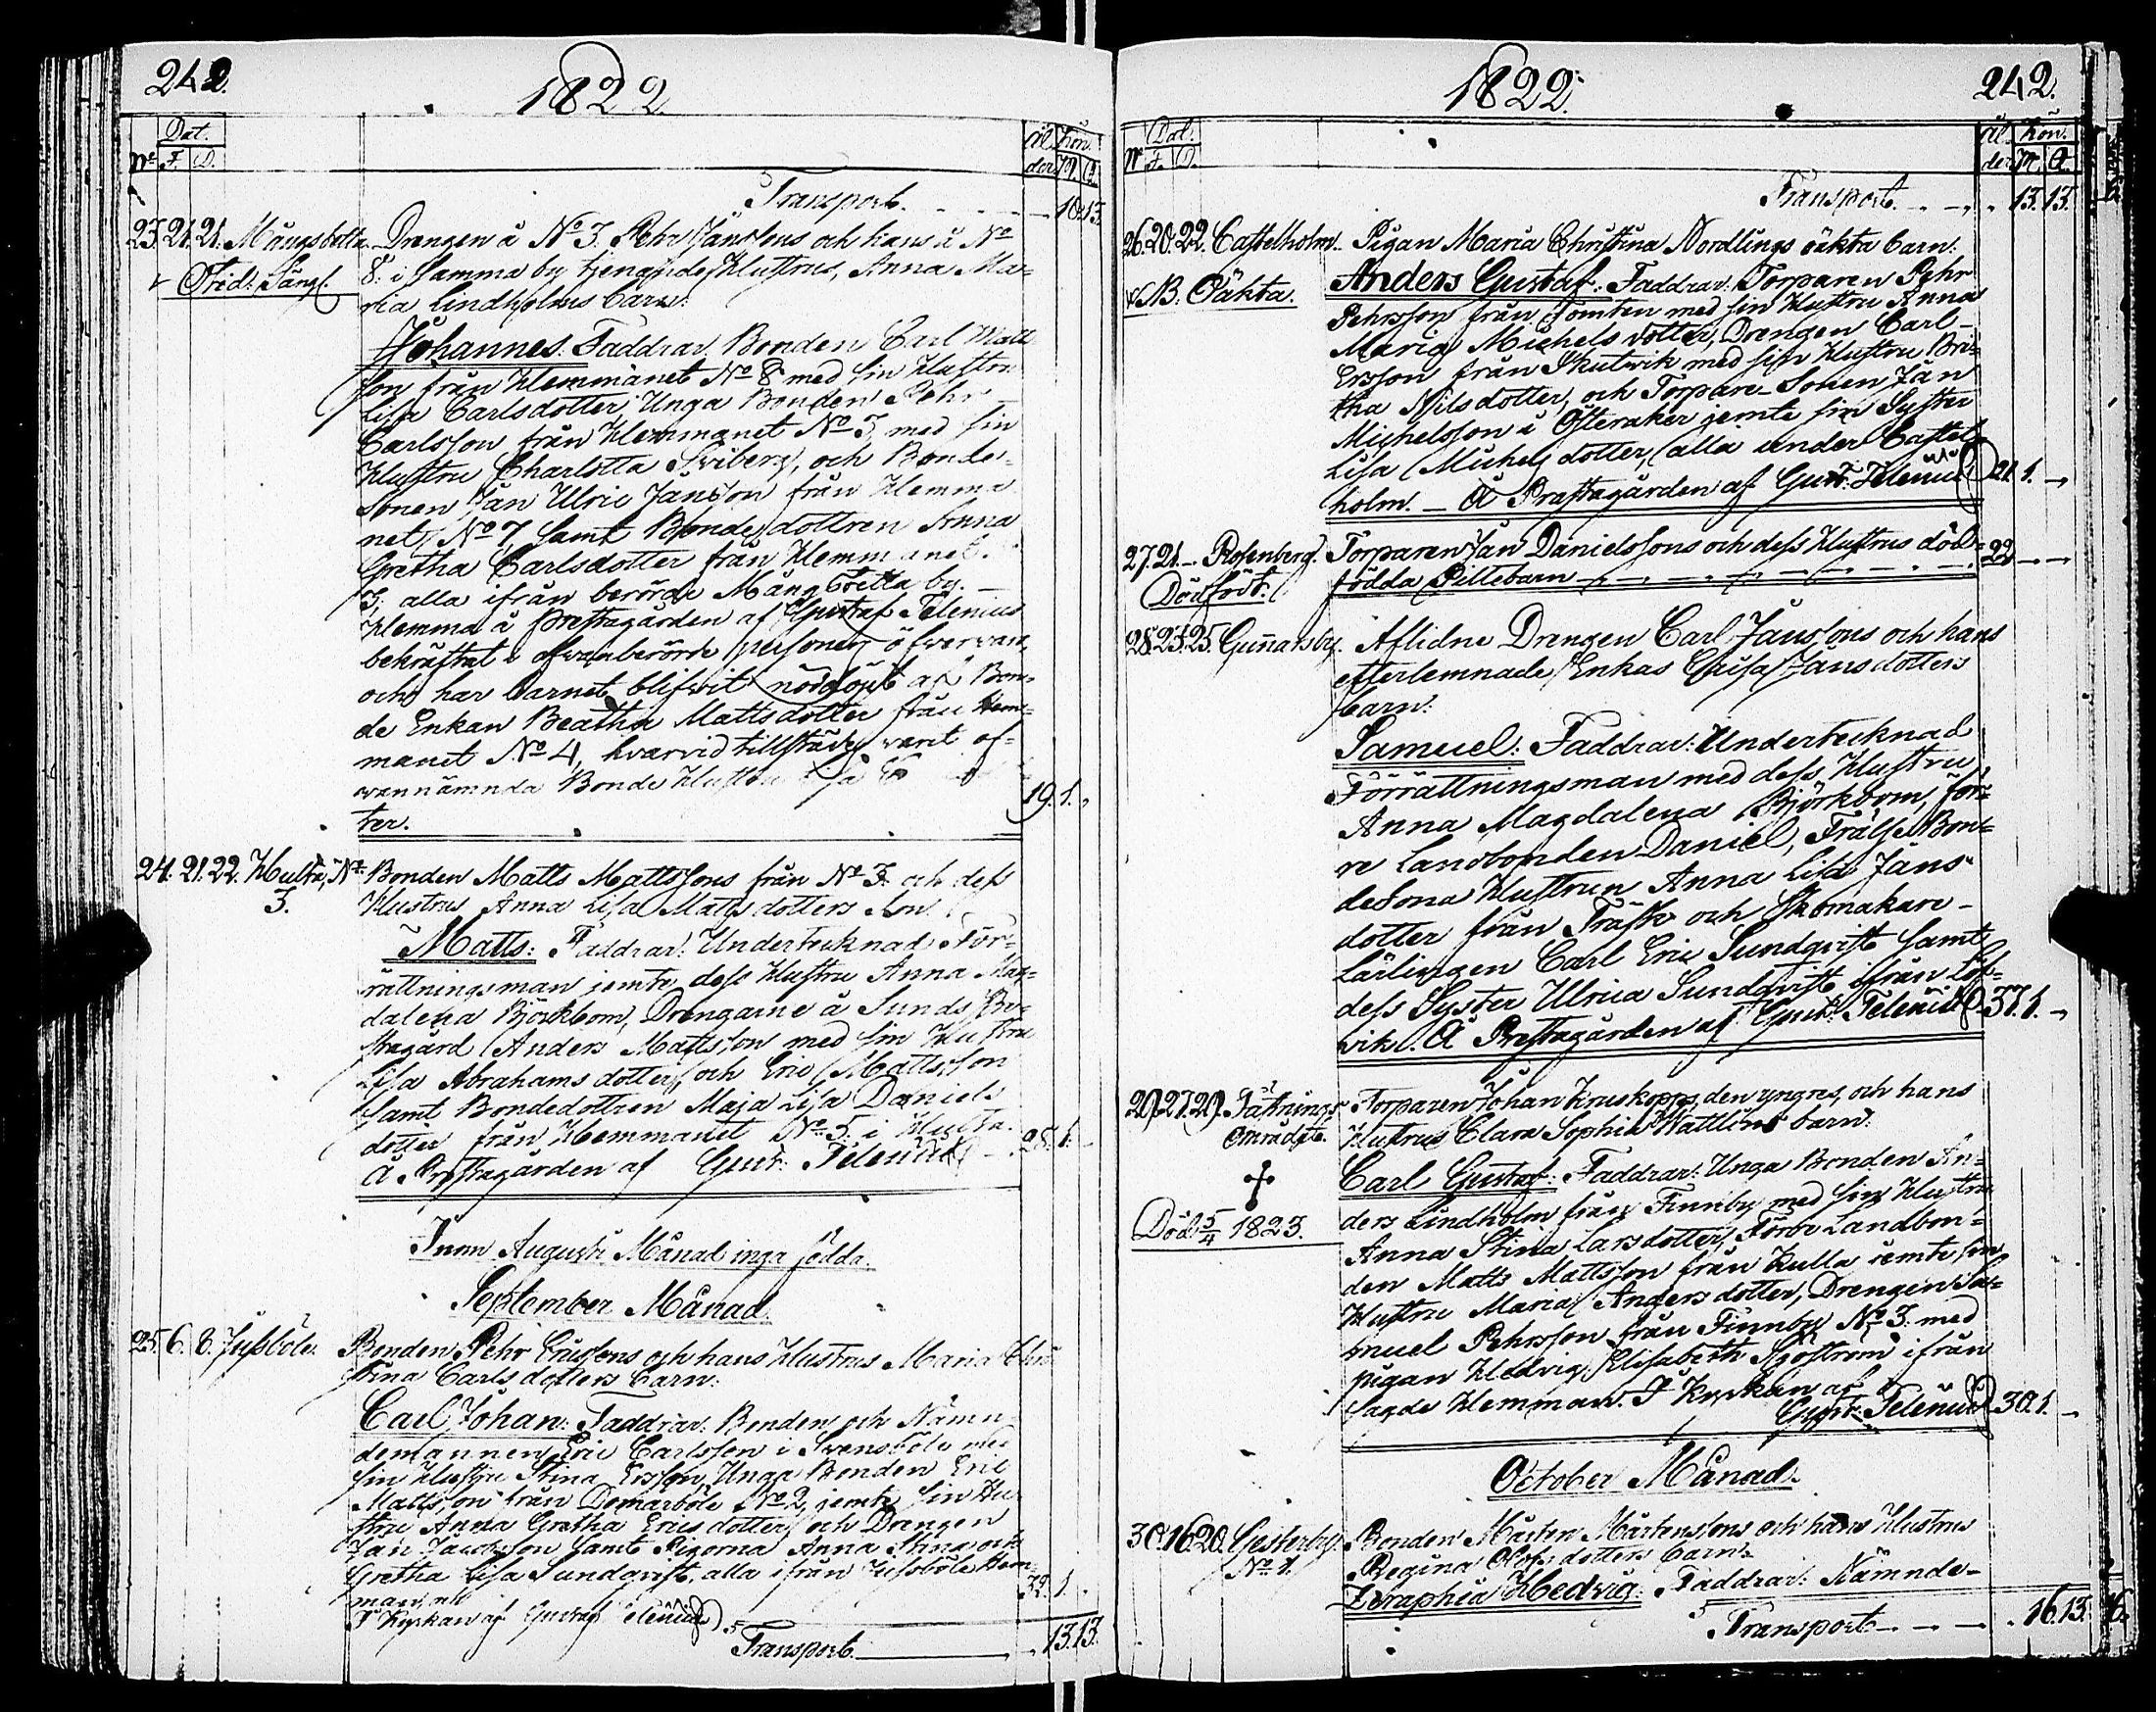 242.
1822.
Dat.
Ål. Kön.
No F. D.
der M. Q.
Transport. 10. 13.
23. 21. 21. Mångstekta Drengen å No 3. Pehr Janssons och hans å No
8. i samma by tjenande Hustrus, Anna Ma-
Oäkt. Säng.
ria Lindholms barn:
Johannes: Faddrar: Bonden Carl Matts
son från Hemmanet No 8 med sin Hustru
Lisa Carlsdotter, Unga Bonden Pehr
Carlsson från Hemmanet No 3, med sin
Hustru Charlotta Sviberg, och Bonde-
Sonen Jan Ulric Jansson från Hemma
net No 7, samt Bondedottren Anna
Gretha Carlsdotter från Hemmanet
3; alla ifrån berörde by.
Hemma å Prestagården af Gustaf Telenius
bekräftat i ofvanberörde personers öfvervaro,
och har barnet blifvit nöddöpt af Bon-
de Enkan Beatha Mattsdotter från Hem-
manet No 4, hvarvid tillstädes varit of-
vannämnda Bonde Hustru Lisa
ter. 19. 1.
24. 21. 22. Hulta, No Bonden Matts Mattssons från No 3. och dess
3. Hustrus Anna Lisa Mattsdotters son
Matts: Faddrar: Undertecknad För-
rättningsman jemte dess Hustru Anna Mag-
dalena Björkbom, Drengarne å Sunds Pre-
stagård Anders Mattsson med sin Hustru
Lisa Abrahamsdotter, och Eric Mattsson
samt Bondedottren Maja Lisa Daniels
dotter från Hemmanet No 5. i Hulta.
Å Prestagården af Gust: Telenius 28. 1.
Inom Augusti Månad inga födda.
September Månad.
25. 6. 8. Jussböle. Bonden Pehr Erssons och hans Hustrus Maria Chri
stina Carlsdotters barn:
Carl Johan: Faddrar: Bonden och Nämn-
demannen Eric Carlsson i Svensböle med
sin Hustru Stina Ersson, Unga Bonden Eric
Mattsson från Domarböle No 2, jemte sin Hu-
stru Anna Gretha Ericsdotter och Drengen
Jan Jacobsson samt Pigorna Anna Stina och
Gretha Lisa Sundqvist, alla ifrån Jussböle Hem-
manet 32. 1.
I Kyrkan af Gustaf Telenius
Transport 13. 13.
1822.
242.
Dat.
Ål. Kön.
No F. D.
der M. Q.
Transport. 13. 13.
26. 20. 22. Castelholm. Pigan Maria Christina Nordlings oäkta barn:
NB. Oäkta. Anders Gustaf: Faddrar: Torparen Pehr
Pehrsson från Tomten med sin Hustru Anna
Maria Michelsdotter, Drengen Carl
Ersson från Skutvik med sin Hustru Bri-
tha Nilsdotter, och Torpare-Sonen Jan
Michelsson i Österåker jemte sin Syster
Lisa Michelsdotter, alla under Castel-
holm. Å Prestagården af Gust: Telenius 21. 1.
27. 21. Rosenberg. Torparen Jan Danielssons och dess Hustrus död-
Dödfödt. födda Piltebarn 22
28. 23. 25. Gunnarsby. Aflidne Drengen Carl Janssons och hans
efterlemnade Enkas Caisa Jansdotters
barn:
Samuel: Faddrar: Undertecknad
Förrättningsman med dess Hustru,
Anna Magdalena Björkbom, för-
re Landbonden Daniel, Frälse Bon-
de Hustrun Anna Lisa Jans-
dotter från Träsk och Skomakare-
Lärlingen Carl Eric Sundqvist samt
dess Syster Ulrica Sundqvist ifrån Löf-
vik. Å Prestagården af Gust: Telenius 37. 1.
29. 27. 29. Tärnings Torparen Johan Kruskopps, den yngres, och hans
området. Hustrus Clara Sophia Wattlins barn:
Carl Gustaf: Faddrar: Unga Bonden An-
Död 5/4 1823. ders Lindholm från Finnby med sin Hustru
Anna Stina Larsdotter, Förre Landbon-
den Matts Mattsson från Kulla jemte sin
Hustru Maria Andersdotter, Drengen Sa-
muel Pehrsson från Finnby No 3. med
pigan Hedvig Elisabeth Sjöström ifrån
sagde Hemman. I Kyrkan af
Gust: Telenius 30. 1.
October Månad.
30. 16. 20. Gesterby Bonden Mårten Mårtenssons och hans Hustrus
No 1. Regina Olofsdotters barn:
Zeraphia Hedvig: Faddrar: Nämnde-
Transport 16. 13.